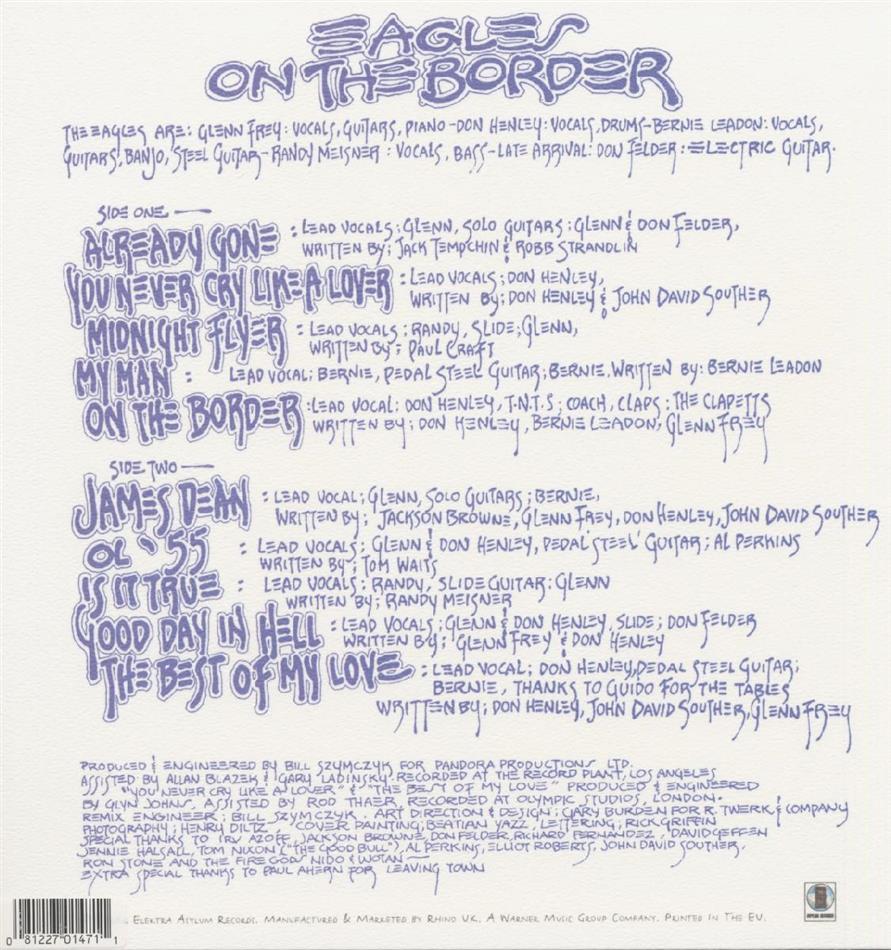 EAGLES
ON THE BORDER
THE EAGLES ARE: GLENN FREY: VOCALS, GUITARS, PIANO-DON HENLEY: VOCALS, DRUMS-BERNIE LEADON: VOCALS,
GUITARS, BANJO, STEEL GUITAR-RANDY MEISNER: VOCALS, BASS-LATE ARRIVAL: DON FELDER: ELECTRIC GUITAR.
SIDE ONE —
ALREADY GONE : LEAD VOCALS; GLENN, SOLO GUITARS; GLENN & DON FELDER,
WRITTEN BY; JACK TEMPCHIN & ROBB STRANDLIN
YOU NEVER CRY LIKE A LOVER : LEAD VOCALS; DON HENLEY,
WRITTEN BY; DON HENLEY & JOHN DAVID SOUTHER
MIDNIGHT FLYER : LEAD VOCALS; RANDY, SLIDE; GLENN,
WRITTEN BY; PAUL CRAFT
MY MAN : LEAD VOCAL; BERNIE, PEDAL STEEL GUITAR; BERNIE. WRITTEN BY: BERNIE LEADON
ON THE BORDER : LEAD VOCAL; DON HENLEY, T.N.T.S; COACH, CLAPS; THE CLAPETTS
WRITTEN BY; DON HENLEY, BERNIE LEADON, GLENN FREY
SIDE TWO —
JAMES DEAN : LEAD VOCAL; GLENN, SOLO GUITARS; BERNIE,
WRITTEN BY; JACKSON BROWNE, GLENN FREY, DON HENLEY, JOHN DAVID SOUTHER
OL '55 : LEAD VOCALS; GLENN & DON HENLEY, PEDAL STEEL GUITAR; AL PERKINS
WRITTEN BY; TOM WAITS
IS IT TRUE : LEAD VOCALS; RANDY, SLIDE GUITAR; GLENN
WRITTEN BY; RANDY MEISNER
GOOD DAY IN HELL : LEAD VOCALS; GLENN & DON HENLEY, SLIDE; DON FELDER
WRITTEN BY; GLENN FREY & DON HENLEY
THE BEST OF MY LOVE : LEAD VOCAL; DON HENLEY, PEDAL STEEL GUITAR;
BERNIE, THANKS TO GUIDO FOR THE TABLES
WRITTEN BY; DON HENLEY, JOHN DAVID SOUTHER, GLENN FREY
PRODUCED & ENGINEERED BY BILL SZYMCZYK FOR PANDORA PRODUCTIONS LTD.
ASSISTED BY ALLAN BLAZEK & GARY LADINSKY. RECORDED AT THE RECORD PLANT, LOS ANGELES
"YOU NEVER CRY LIKE A LOVER" & "THE BEST OF MY LOVE" PRODUCED & ENGINEERED
BY GLYN JOHNS, ASSISTED BY ROD THAER. RECORDED AT OLYMPIC STUDIOS, LONDON.
REMIX ENGINEER; BILL SZYMCZYK. ART DIRECTION & DESIGN; GARY BURDEN FOR R. TWERK & COMPANY
PHOTOGRAPHY; HENRY DILTZ. COVER PAINTING; BEATIAN YAZZ, LETTERING; RICK GRIFFIN
SPECIAL THANKS TO IRV AZOFF, JACKSON BROWNE, DON FELDER, RICHARD FERNANDEZ, DAVID GEFFEN
JENNIE HALSALL, TOM NIXON ("THE GOOD BULL"), AL PERKINS, ELLIOT ROBERTS, JOHN DAVID SOUTHER,
RON STONE AND THE FIRE GODS NIDO & WOTAN—
EXTRA SPECIAL THANKS TO PAUL AHERN FOR LEAVING TOWN
ELEKTRA ASYLUM RECORDS. MANUFACTURED & MARKETED BY RHINO UK. A WARNER MUSIC GROUP COMPANY. PRINTED IN THE EU.
0 81227 01471 1